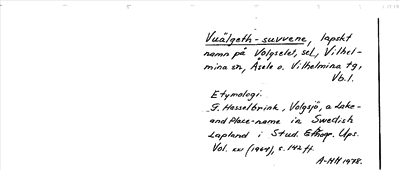 Vuälgeth-suvvene, lapskt
namn på Volgselet, sel, Vilhel-
mina sn, Åsele o. Vilhelmina tg,
Vb.l.
Etymologi.
F. Hesselbrink, Volgsjö, a Lake-
and Place-name in Swedish
Lapland i Stud. Ethogr. Ups.
Vol. XXI (1964), s. 142 ff.
A-MH 1978.